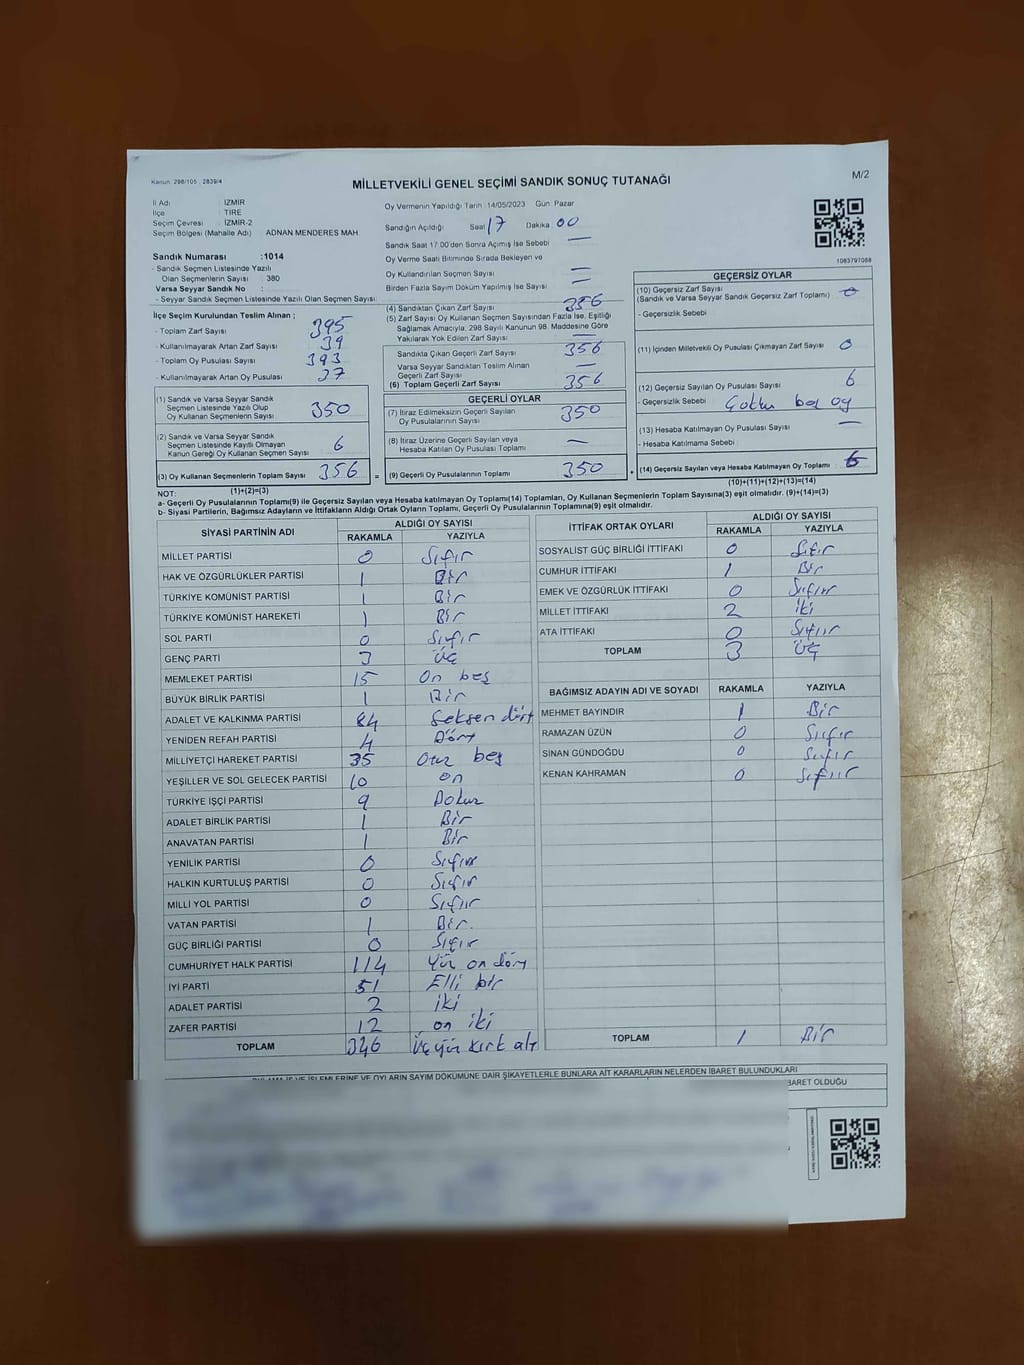 Kanun: 298/105 , 2839/4
MİLLETVEKİLİ GENEL SEÇİMİ SANDIK SONUÇ TUTANAĞI
M/2
İl Adı : İZMİR
İlçe : TİRE
Seçim Çevresi : İZMİR-2
Seçim Bölgesi (Mahalle Adı) : ADNAN MENDERES MAH.
Oy Vermenin Yapıldığı Tarih :14/05/2023 Gün: Pazar
Sandığın Açıldığı Saat 17 Dakika 00
Sandık Saat 17.00'den Sonra Açımış İse Sebebi —
Oy Verme Saati Bitiminde Sırada Bekleyen ve
Oy Kullandırılan Seçmen Sayısı —
Birden Fazla Sayım Döküm Yapılmış İse Sayısı —
1083797088
Sandık Numarası :1014
- Sandık Seçmen Listesinde Yazılı
Olan Seçmenlerin Sayısı : 380
Varsa Seyyar Sandık No :
- Seyyar Sandık Seçmen Listesinde Yazılı Olan Seçmen Sayısı:
İlçe Seçim Kurulundan Teslim Alınan ;
- Toplam Zarf Sayısı 395
- Kullanılmayarak Artan Zarf Sayısı : 39
- Toplam Oy Pusulası Sayısı 393
- Kullanılmayarak Artan Oy Pusulası 37
(1) Sandık ve Varsa Seyyar Sandık
Seçmen Listesinde Yazılı Olup
Oy Kullanan Seçmenlerin Sayısı 350
(2) Sandık ve Varsa Seyyar Sandık
Seçmen Listesinde Kayıtlı Olmayan
Kanun Gereği Oy Kullanan Seçmen Sayısı 6
(3) Oy Kullanan Seçmenlerin Toplam Sayısı 356 =
(1)+(2)=(3)
(4) Sandıktan Çıkan Zarf Sayısı 356
(5) Zarf Sayısı Oy Kullanan Seçmen Sayısından Fazla İse, Eşitliği
Sağlamak Amacıyla, 298 Sayılı Kanunun 98. Maddesine Göre
Yakılarak Yok Edilen Zarf Sayısı —
Sandıkta Çıkan Geçerli Zarf Sayısı 356
Varsa Seyyar Sandıktan Teslim Alınan
Geçerli Zarf Sayısı —
(6) Toplam Geçerli Zarf Sayısı 356
GEÇERLİ OYLAR
(7) İtiraz Edilmeksizin Geçerli Sayılan
Oy Pusulalarının Sayısı 350
(8) İtiraz Üzerine Geçerli Sayılan veya
Hesaba Katılan Oy Pusulası Toplamı —
(9) Geçerli Oy Pusulalarının Toplamı 350 +
GEÇERSİZ OYLAR
(10) Geçersiz Zarf Sayısı :
(Sandık ve Varsa Seyyar Sandık Geçersiz Zarf Toplamı) 0
- Geçersizlik Sebebi
(11) İçinden Milletvekili Oy Pusulası Çıkmayan Zarf Sayısı 0
(12) Geçersiz Sayılan Oy Pusulası Sayısı 6
- Geçersizlik Sebebi boş oy
(13) Hesaba Katılmayan Oy Pusulası Sayısı —
- Hesaba Katılmama Sebebi :
(14) Geçersiz Sayılan veya Hesaba Katılmayan Oy Toplamı 6
(10)+(11)+(12)+(13)=(14)
NOT:
a- Geçerli Oy Pusulalarının Toplamı(9) ile Geçersiz Sayılan veya Hesaba katılmayan Oy Toplamı(14) Toplamları, Oy Kullanan Seçmenlerin Toplam Sayısına(3) eşit olmalıdır. (9)+(14)=(3)
b- Siyasi Partilerin, Bağımsız Adayların ve İttifakların Aldığı Ortak Oyların Toplamı, Geçerli Oy Pusulalarının Toplamına(9) eşit olmalıdır.
SİYASİ PARTİNİN ADI ALDIĞI OY SAYISI
RAKAMLA YAZIYLA
MİLLET PARTİSİ 0 Sıfır
HAK VE ÖZGÜRLÜKLER PARTİSİ 1 Bir
TÜRKİYE KOMÜNİST PARTİSİ 1 Bir
TÜRKİYE KOMÜNİST HAREKETİ 1 Bir
SOL PARTİ 0 Sıfır
GENÇ PARTİ 3 Üç
MEMLEKET PARTİSİ 15 On beş
BÜYÜK BİRLİK PARTİSİ 1 Bir
ADALET VE KALKINMA PARTİSİ 84 Seksen dört
YENİDEN REFAH PARTİSİ 4 Dört
MİLLİYETÇİ HAREKET PARTİSİ 35 Otuz beş
YEŞİLLER VE SOL GELECEK PARTİSİ 10 On
TÜRKİYE İŞÇİ PARTİSİ 9 Dokuz
ADALET BİRLİK PARTİSİ 1 Bir
ANAVATAN PARTİSİ 1 Bir
YENİLİK PARTİSİ 0 Sıfır
HALKIN KURTULUŞ PARTİSİ 0 Sıfır
MİLLİ YOL PARTİSİ 0 Sıfır
VATAN PARTİSİ 1 Bir.
GÜÇ BİRLİĞİ PARTİSİ 0 Sıfır
CUMHURİYET HALK PARTİSİ 114 Yüz on dört
İYİ PARTİ 51 Elli bir
ADALET PARTİSİ 2 iki
ZAFER PARTİSİ 12 on iki
TOPLAM 346 Üçyüz kırk altı
İTTİFAK ORTAK OYLARI ALDIĞI OY SAYISI
RAKAMLA YAZIYLA
SOSYALİST GÜÇ BİRLİĞİ İTTİFAKI 0 Sıfır
CUMHUR İTTİFAKI 1 Bir
EMEK VE ÖZGÜRLÜK İTTİFAKI 0 Sıfır
MİLLET İTTİFAKI 2 iki
ATA İTTİFAKI 0 Sıfır
TOPLAM 3 Üç
BAĞIMSIZ ADAYIN ADI VE SOYADI RAKAMLA YAZIYLA
MEHMET BAYINDIR 1 Bir
RAMAZAN ÜZÜN 0 Sıfır
SİNAN GÜNDOĞDU 0 Sıfır
KENAN KAHRAMAN 0 Sıfır
TOPLAM 1 Bir
İŞ VE İŞLEMLERİNE VE OYLARIN SAYIM DÖKÜMÜNE DAİR ŞİKAYETLERLE BUNLARA AİT KARARLARIN NELERDEN İBARET BULUNDUKLARI
OLDUĞU